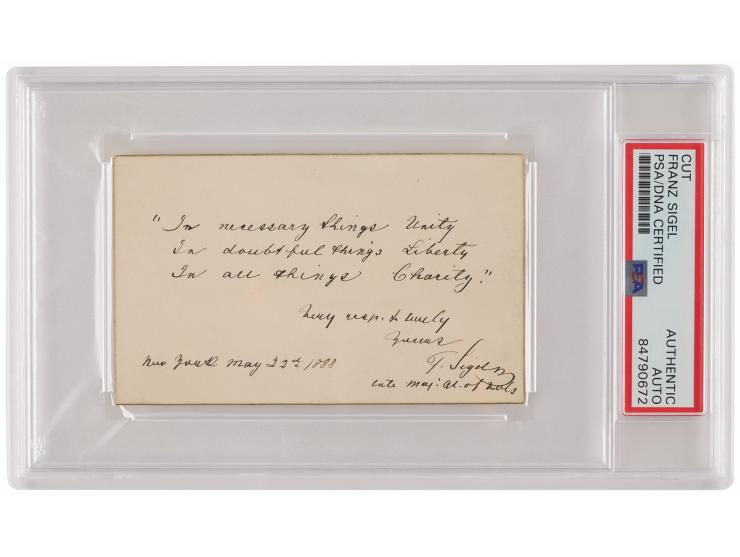 "In necessary things Unity
In doubtful things Liberty
In all things Charity."
Very resp. & truly
Yours
F. Sigel
New York May 22d 1888
late Maj: Gl. of Vols
CUT
FRANZ SIGEL
PSA/DNA CERTIFIED
PSA
AUTHENTIC
AUTO
84790672